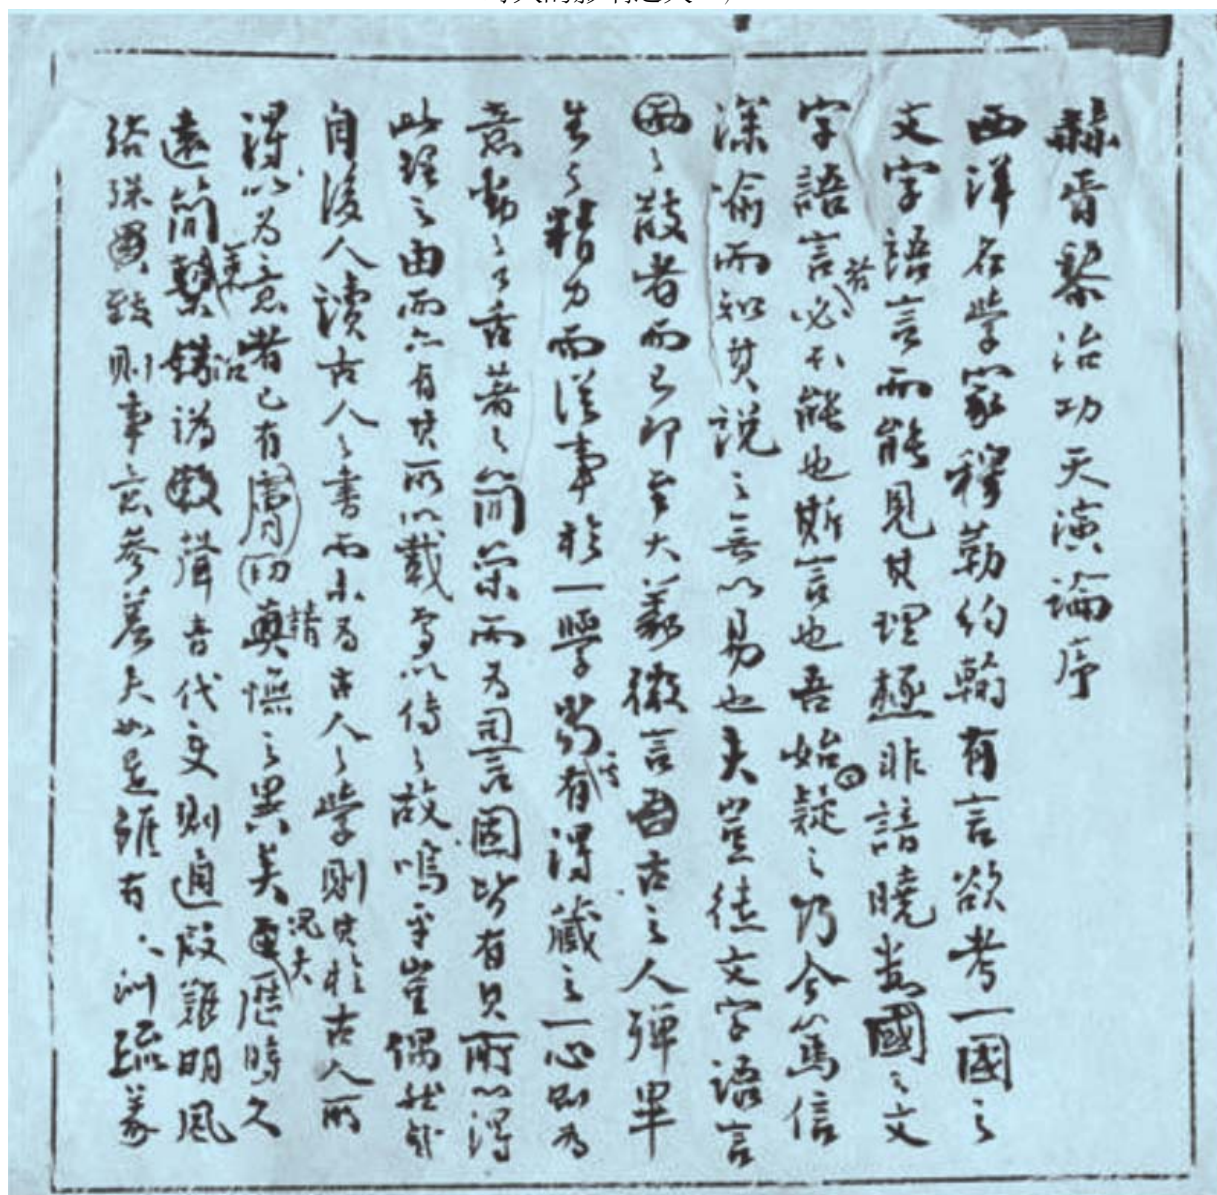 赫胥黎治功天演論序
西洋名學家穆勒約翰有言欲考一國之
文字語言而能見其理極非諳曉數國之文
字語言者必不能也斯言也吾始疑之乃今篤信
深喻而知其說之無以易也夫豈徒文字語言
之散者而已即至大義微言古之人殫畢
生之精力而從事於一學當有得藏之一心則為
意動之口舌著之簡策而為言固皆有其所以得
此理之由而亦有其所以載焉以傳之故嗚乎豈偶然哉
自後人讀古人之書而未為古人之學則其於古人所
得以為意者已有膚切真憮之異矣況夫歷時久
遠簡沿譌聲音代变則通叚難明風
俗殊致則事意參差夫如是雖有訓疏義